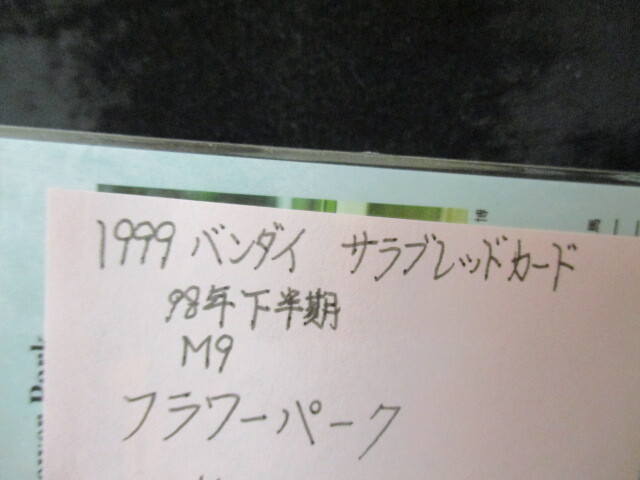 1999 バンダイ サラブレッドカード
98年下半期
M9
フラワーパーク
博
馬